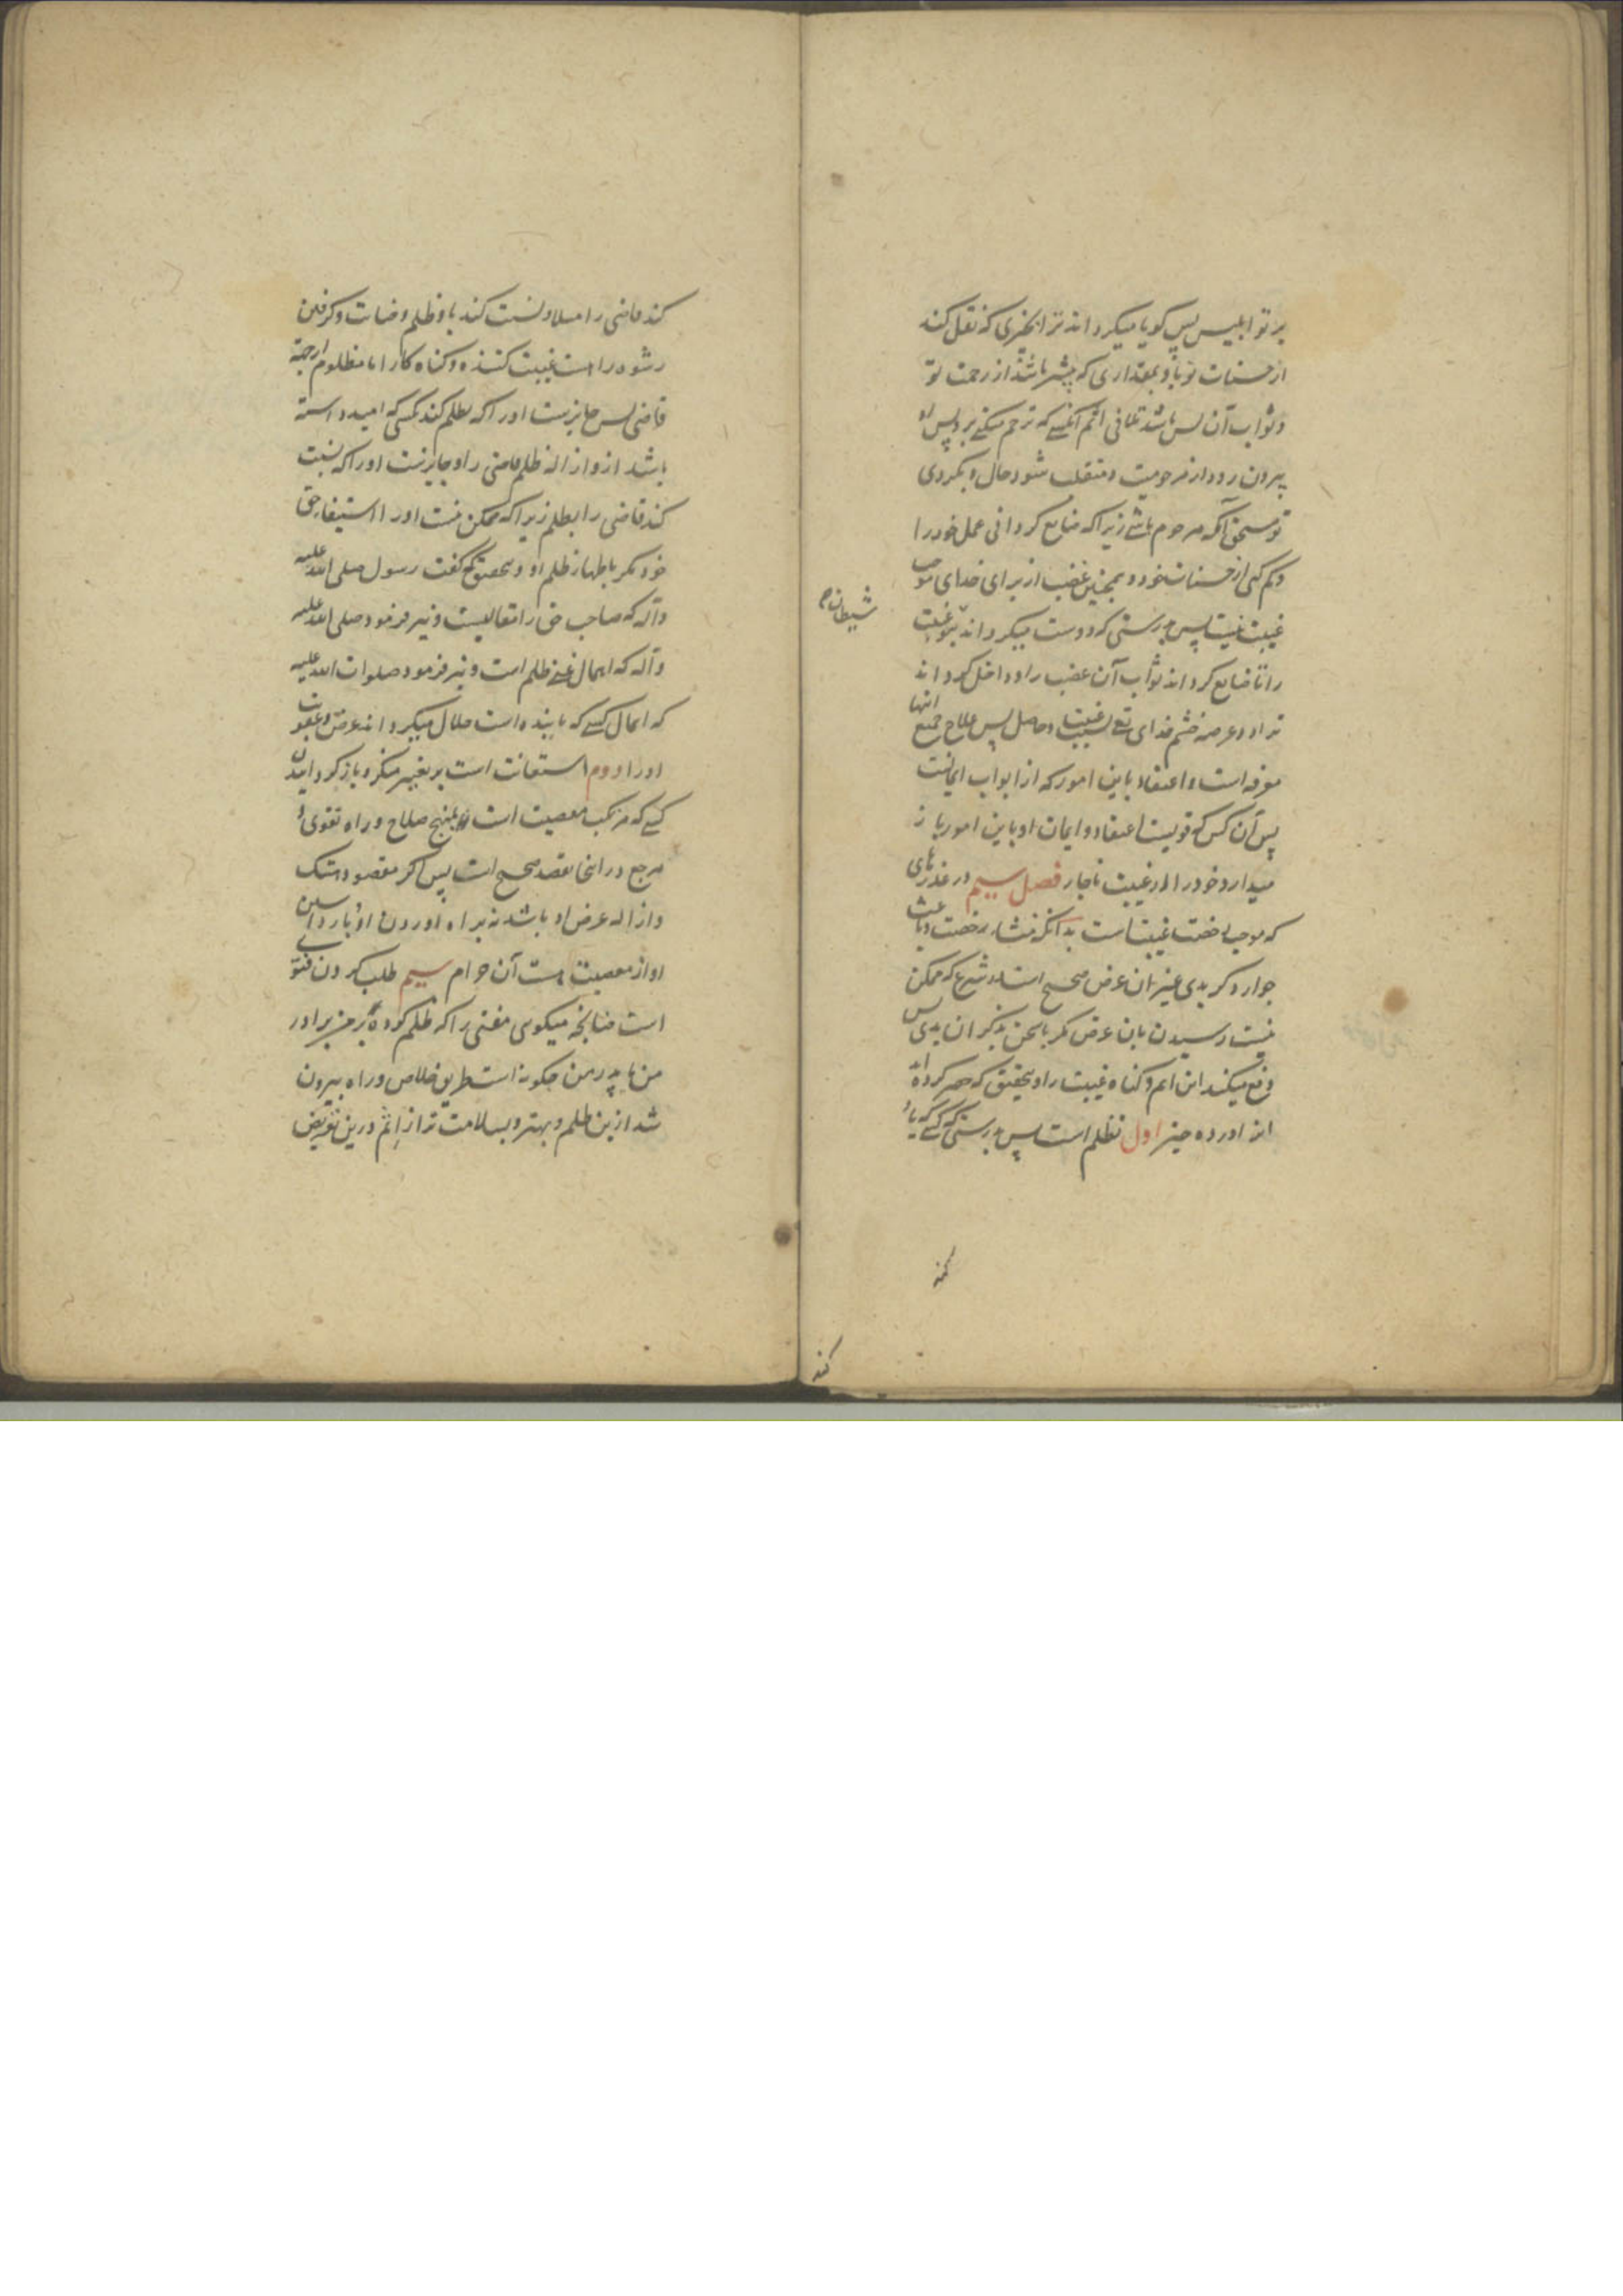 بر تو ابلیس پس گویا میگرداند ترا بچیزی که نقل کند
از حسنات تو باو بمقداری که بیشتر باشد از رحمت تو
و ثواب آن پس باشد تلافی اثم آنکسی که ترحم میکنی برو پس او
بیرون رود از مرحومیت و منقلب شود حال و بگردی
تو مستحق آنکه مرحوم باشی زیرا که ضایع گردانی عمل خود را
و کم کنی از حسنات خود و همچنین غضب از برای خدای موجب
غیبت نیست پس بدرستی که دوست میگرداند بتو غیبت
شیطان
را تا ضایع گرداند ثواب آن غضب را و داخل گرداند
ترا در عرصه خشم خدای تع بسبب غیبت و حاصل پس علاج جمیع اینها
معرفه است و اعتقاد باین امور که از ابواب ایمانست
پس آن کس که قویست اعتقاد و ایمان او باین امور باز
میدارد خود را از غیبت ناچار فصل سیم در عذرهای
که موجب رخصت غیبت است بدانکه منشاء رخصت و باعث
جواز ذکر بدی غیر آن غرض صحیح است در شرع که ممکن
نیست رسیدن بان غرض مگر باسخن بذکر آن بدی پس
دفع میکند این اثم و گناه غیبت را و بتحقیق که حصر کرده اند
آن در ده چیز اول تظلم است پس بدرستی که کسی که یاد
کند
کند قاضی را مسلا و نسبت کند باو ظلم و خیانت و گرفتن
رشوه را هست غیبت کننده و گناه کار اما مظلوم از جهة
قاضی پس جایز نیست او را که تظلم کند بکسی که امید داشته
باشد ازو ازاله ظلم قاضی را و جایز نیست او را که نسبت
کند قاضی را بظلم زیرا که ممکن نیست او را استیفاء حق
خود مگر باظهار ظلم او و بتحقیق که گفت رسول صلی الله علیه
و آله که صاحب حق را مقالیست و نیز فرمود صلی الله علیه
و آله که اهمال غنی ظلم است و نیز فرمود صلوات الله علیه
که اهمال کسی که یابنده است حلال میگرداند عرض و عقوبت
او را دوم استعانت است بر تغییر منکر و باز گردانیدن
کسی که مرتکب معصیت است بمنهج صلاح و راه تقوی و
مرجع در اینجا قصد صحیح است پس اگر مقصود هتک
و ازاله عرض او باشد نه براه آوردن او و بازداشتن
او از معصیت هست آن حرام سیم طلب کردن فتوی
است چنانچه میگوئی مفتی را که ظلم کرده بر من برادر
من یا پدر من چگونه است طریق خلاص و راه بیرون
شد ازین ظلم و بهتر و بسلامت تر از اثم درین تعریض